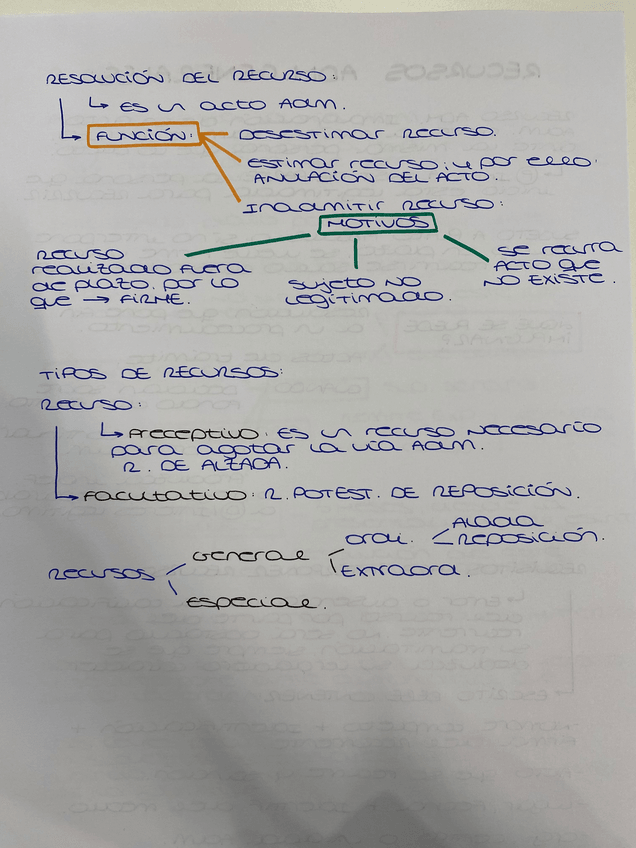 RESOLUCIÓN DEL RECURSO:
↳ ES UN ACTO ADM.
↳ FUNCIÓN:
DESESTIMAR RECURSO.
ESTIMAR RECURSO, y por ello.
ANULACIÓN DEL ACTO.
INADMITIR RECURSO:
MOTIVOS
RECUSO
realizado fuera
de plazo. por lo
que → FIRME.
Sujeto NO
Legitimado.
Se recurra
ACTO que
NO EXISTE.
TIPOS DE RECURSOS:
RECURSO:
↳ Preceptivo: ES UN RECURSO NECESARIO
para agotar la vía ADM.
R. DE ALZADA.
↳ Facultativo: R. POTEST. DE REPOSICIÓN.
RECURSOS
General
Ordi.
Alzada
REPOSICIÓN.
EXTRAORD.
ESPECIAL.